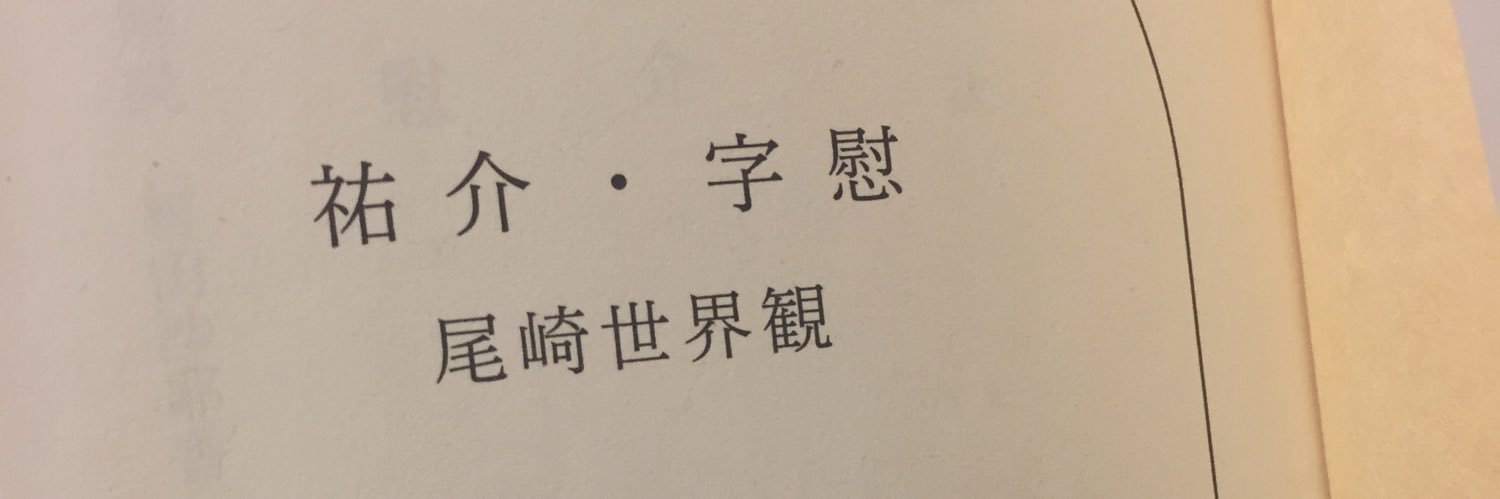 祐介・字慰
尾崎世界観